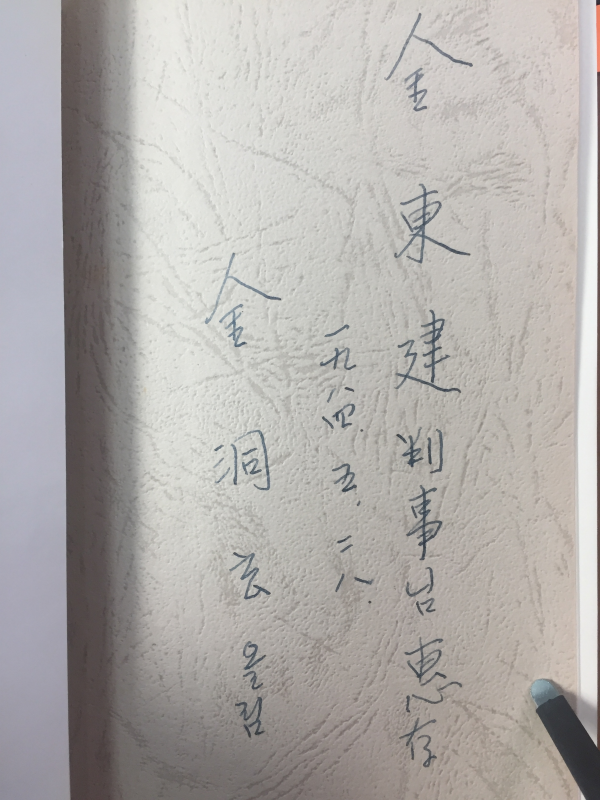 金東建判事台惠存
一九八四. 五. 二八.
金洞玄 올림